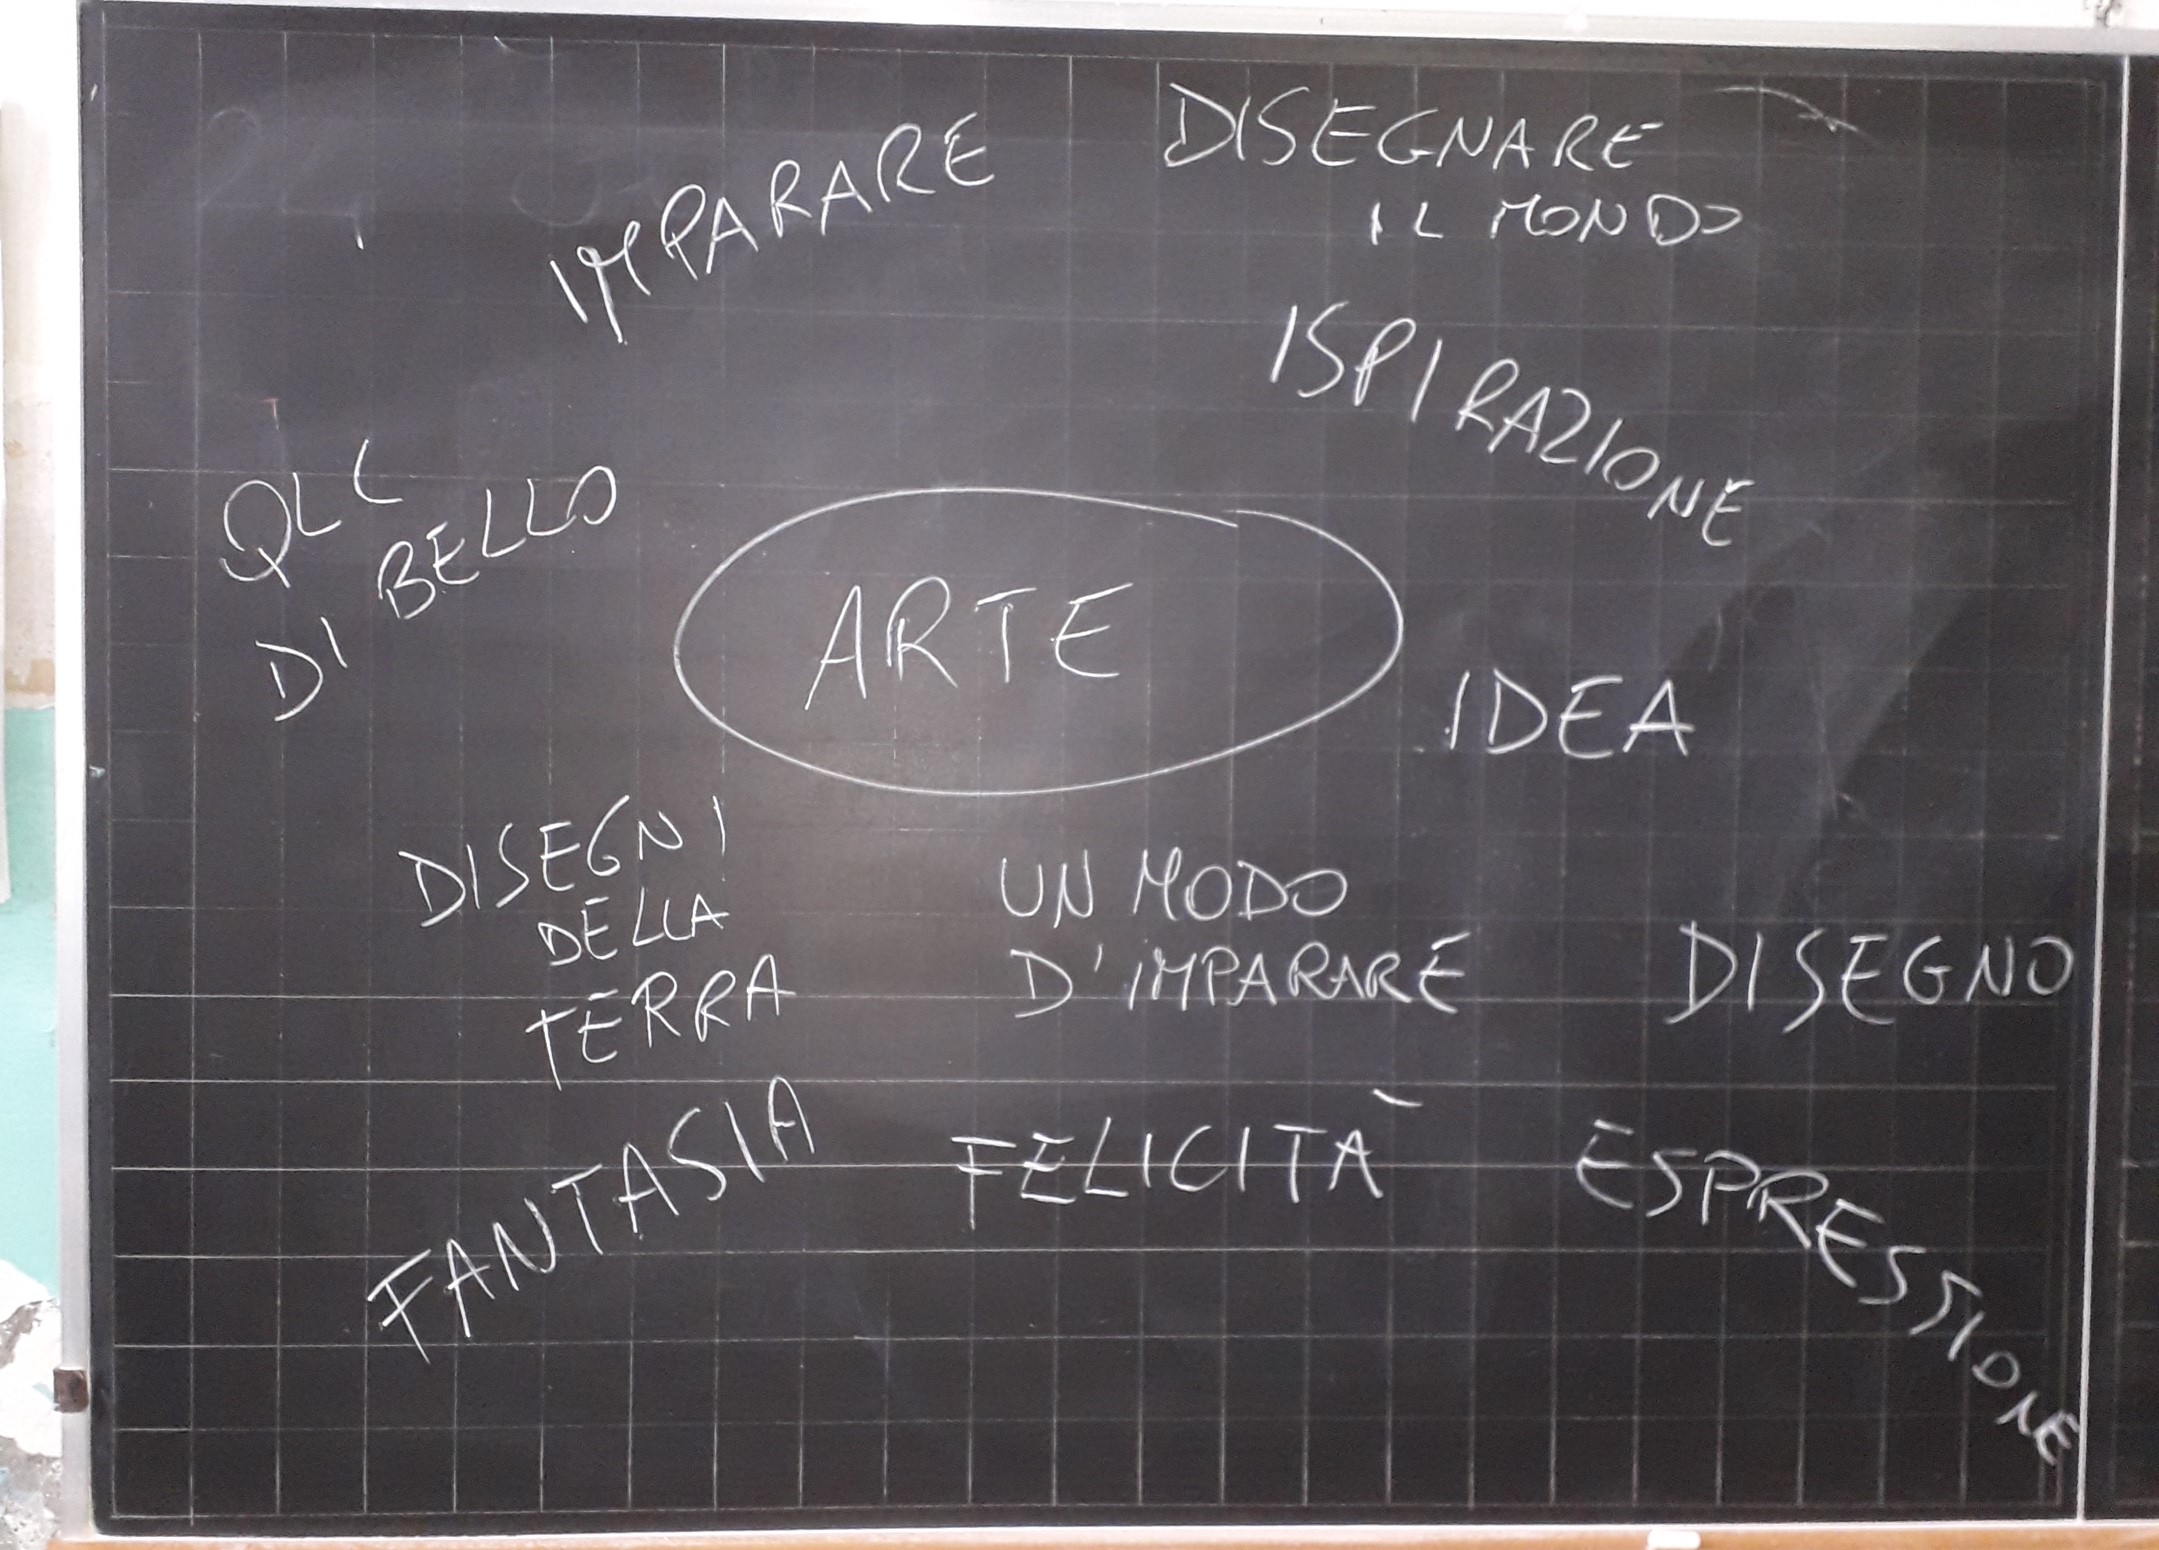 IMPARARE
DISEGNARE
IL MONDO
ISPIRAZIONE
QLC
DI BELLO
ARTE
IDEA
DISEGNI
DELLA
TERRA
UN MODO
D'IMPARARE
DISEGNO
FANTASIA
FELICITÀ
ESPRESSIONE